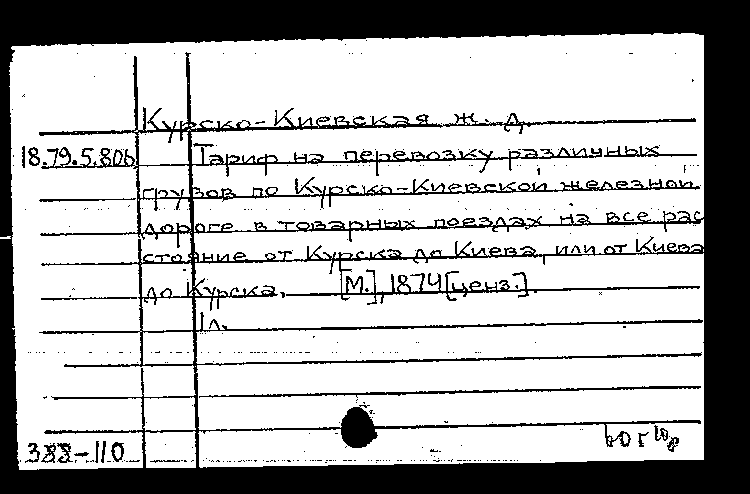 Курско-Киевская ж. д.
18.79.5.806 Тариф на перевозку различных
грузов по Курско-Киевской железной
дороге в товарных поездах на все рас
стояние от Курска до Киева, или от Киева
до Курска. [М.], 1874 [ценз.].
1л.
388-110